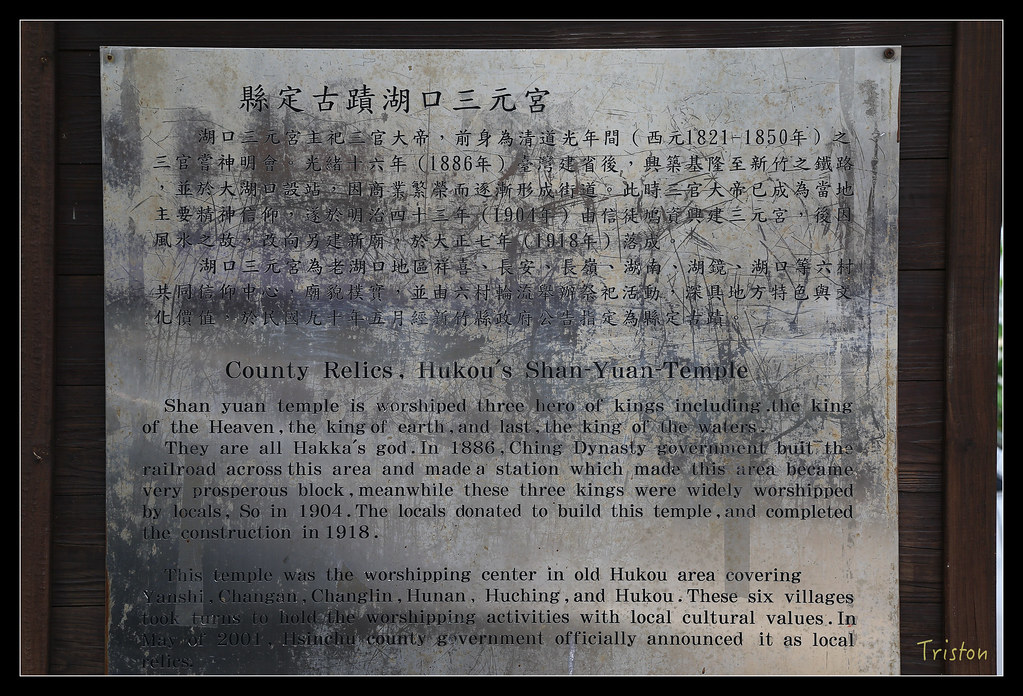 縣定古蹟湖口三元宮
湖口三元宮主祀三官大帝，前身為清道光年間（西元1821-1850年）之
三官嘗神明會。光緒十六年（1886年）臺灣建省後，興築基隆至新竹之鐵路
，並於大湖口設站，因商業繁榮而逐漸形成街道。此時三官大帝已成為當地
主要精神信仰，遂於明治四十三年（1904年）由信徒鳩資興建三元宮，後因
風水之故，改向另建新廟，於大正七年（1918年）落成。
湖口三元宮為老湖口地區祥喜、長安、長嶺、湖南、湖鏡、湖口等六村
共同信仰中心，廟貌樸實，並由六村輪流舉辦祭祀活動，深具地方特色與文
化價值，於民國九十年五月經新竹縣政府公告指定為縣定古蹟。
County Relics, Hukou's Shan-Yuan-Temple
Shan yuan temple is worshiped three hero of kings including.the king
of the Heaven,the king of earth,and last,the king of the waters.
They are all Hakka's god.In 1886,Ching Dynasty government buit the
railroad across this area and made a station which made this area became
very prosperous block,meanwhile these three kings were widely worshipped
by locals. So in 1904.The locals donated to build this temple,and completed
the construction in 1918.
This temple was the worshipping center in old Hukou area covering
Yanshi,Changan,Changlin,Hunan, Huching,and Hukou.These six villages
took turns to hold the worshipping activities with local cultural values.In
May of 2001, Hsinchu county government officially announced it as local
relics.
Triston